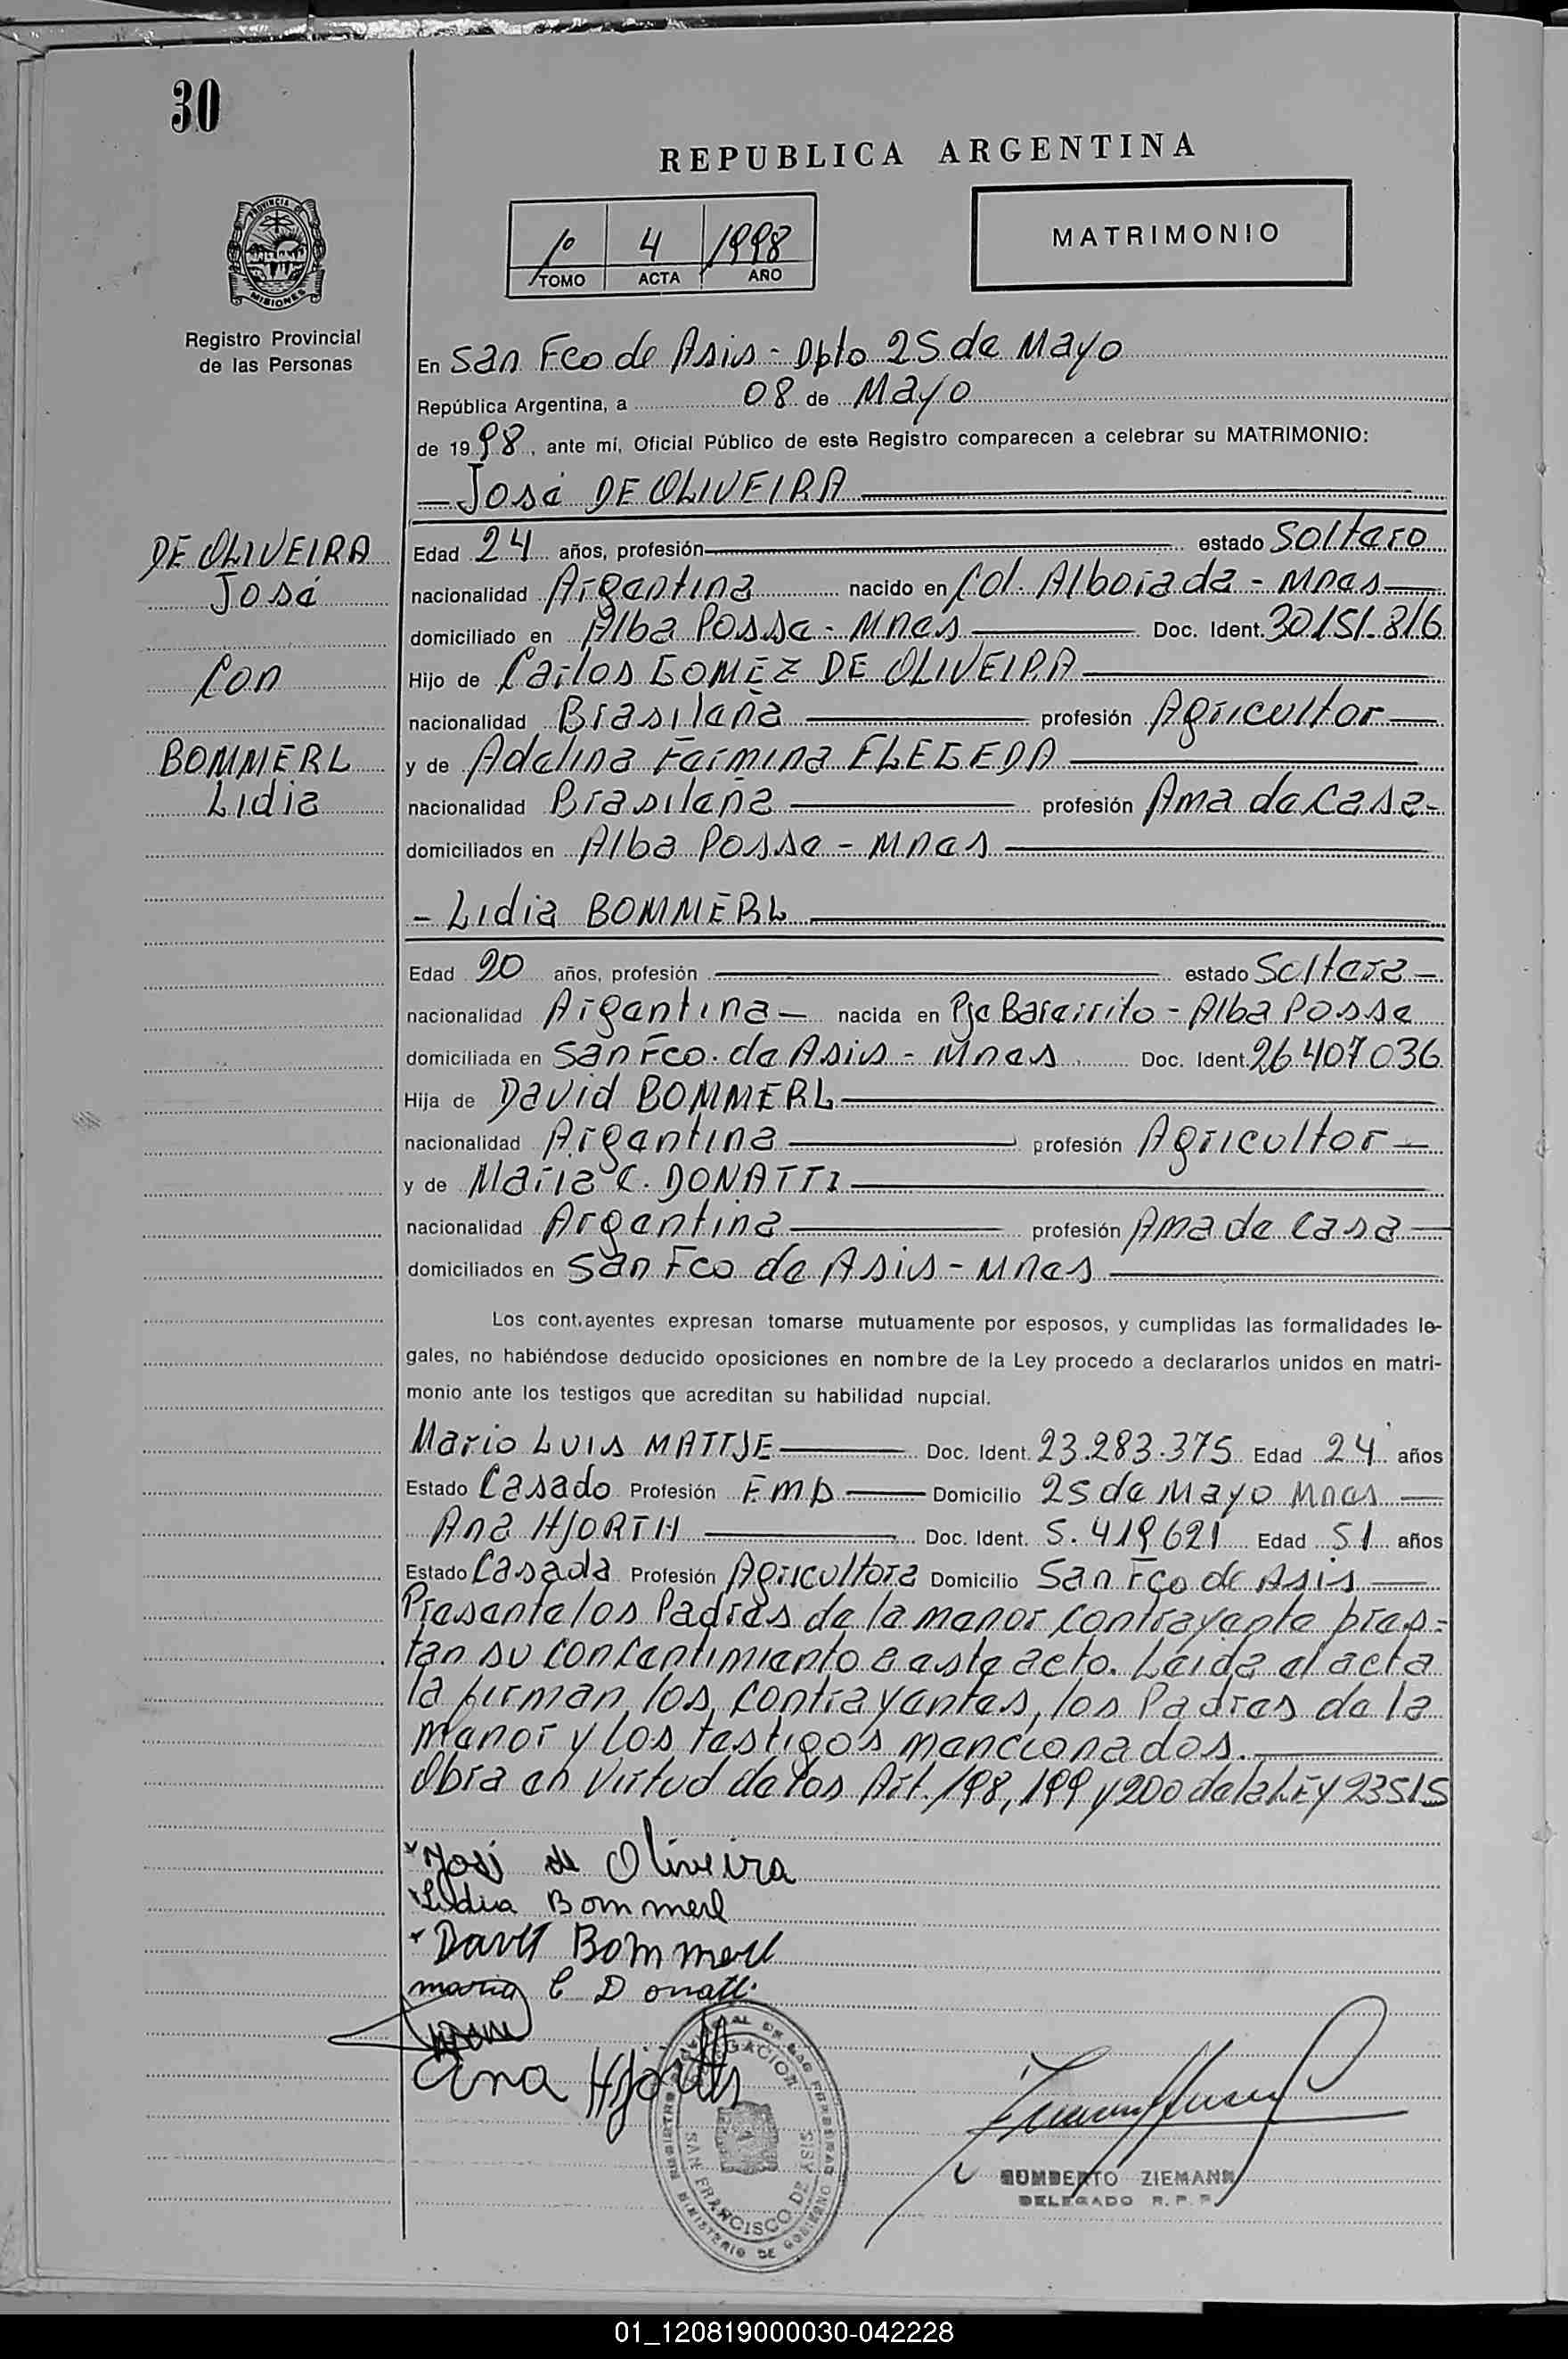 30
REPUBLICA ARGENTINA
1º 4 1998
TOMO ACTA AÑO
MATRIMONIO
PROVINCIA DE
MISIONES
Registro Provincial
de las Personas
En San Fco de Asis - Dpto 25 de Mayo
República Argentina, a 08 de Mayo
de 1998, ante mí, Oficial Público de este Registro comparecen a celebrar su MATRIMONIO:
— José DE OLIVEIRA
DE OLIVEIRA
José
Con
BOMMERL
Lidia
Edad 24 años, profesión estado Soltero
nacionalidad Argentina nacido en Col. Alborada - Mnes
domiciliado en Alba Posse - Mnes Doc. Ident. 30151.816
Hijo de Carlos GOMEZ DE OLIVEIRA
nacionalidad Brasileña profesión Agricultor
y de Adelina Fermina
nacionalidad Brasileña profesión Ama de Casa
domiciliados en Alba Posse - Mnes
- Lidia BOMMERL
Edad 20 años, profesión estado Soltera
nacionalidad Argentina nacida en Pje Barerrito - Alba Posse
domiciliada en San Fco. de Asis - Mnes Doc. Ident. 26.407.036
Hija de David BOMMERL
nacionalidad Argentina profesión Agricultor
y de Maria C. DONATTI
nacionalidad Argentina profesión Ama de Casa
domiciliados en San Fco de Asis - Mnes
Los cont.ayentes expresan tomarse mutuamente por esposos, y cumplidas las formalidades le-
gales, no habiéndose deducido oposiciones en nombre de la Ley procedo a declararlos unidos en matri-
monio ante los testigos que acreditan su habilidad nupcial.
Mario LUIS MATTJE Doc. Ident. 23.283.375 Edad 24 años
Estado Casado Profesión Emp Domicilio 25 de Mayo Mnes
Ana HJORTH Doc. Ident. 5.419621 Edad 51 años
Estado Casada Profesión Agricultora Domicilio San Fco de Asis
Presente los Padres de la menor contrayente pres-
tan su concentimiento a este acto. Leida el acta
la firman los contrayentes, los Padres de la
menor y los testigos mencionados.
Obra en virtud de los Art. 198, 199 y 200 de la LEY 23515
José de Oliveira
Lidia Bommerl
David Bommerl
maria C Donatti
Ana Hjorth
SAN FRANCISCO DE ASIS
MINISTERIO DE GOBIERNO
HUMBERTO ZIEMANN
DELEGADO R. P. P.
01_120819000030-042228